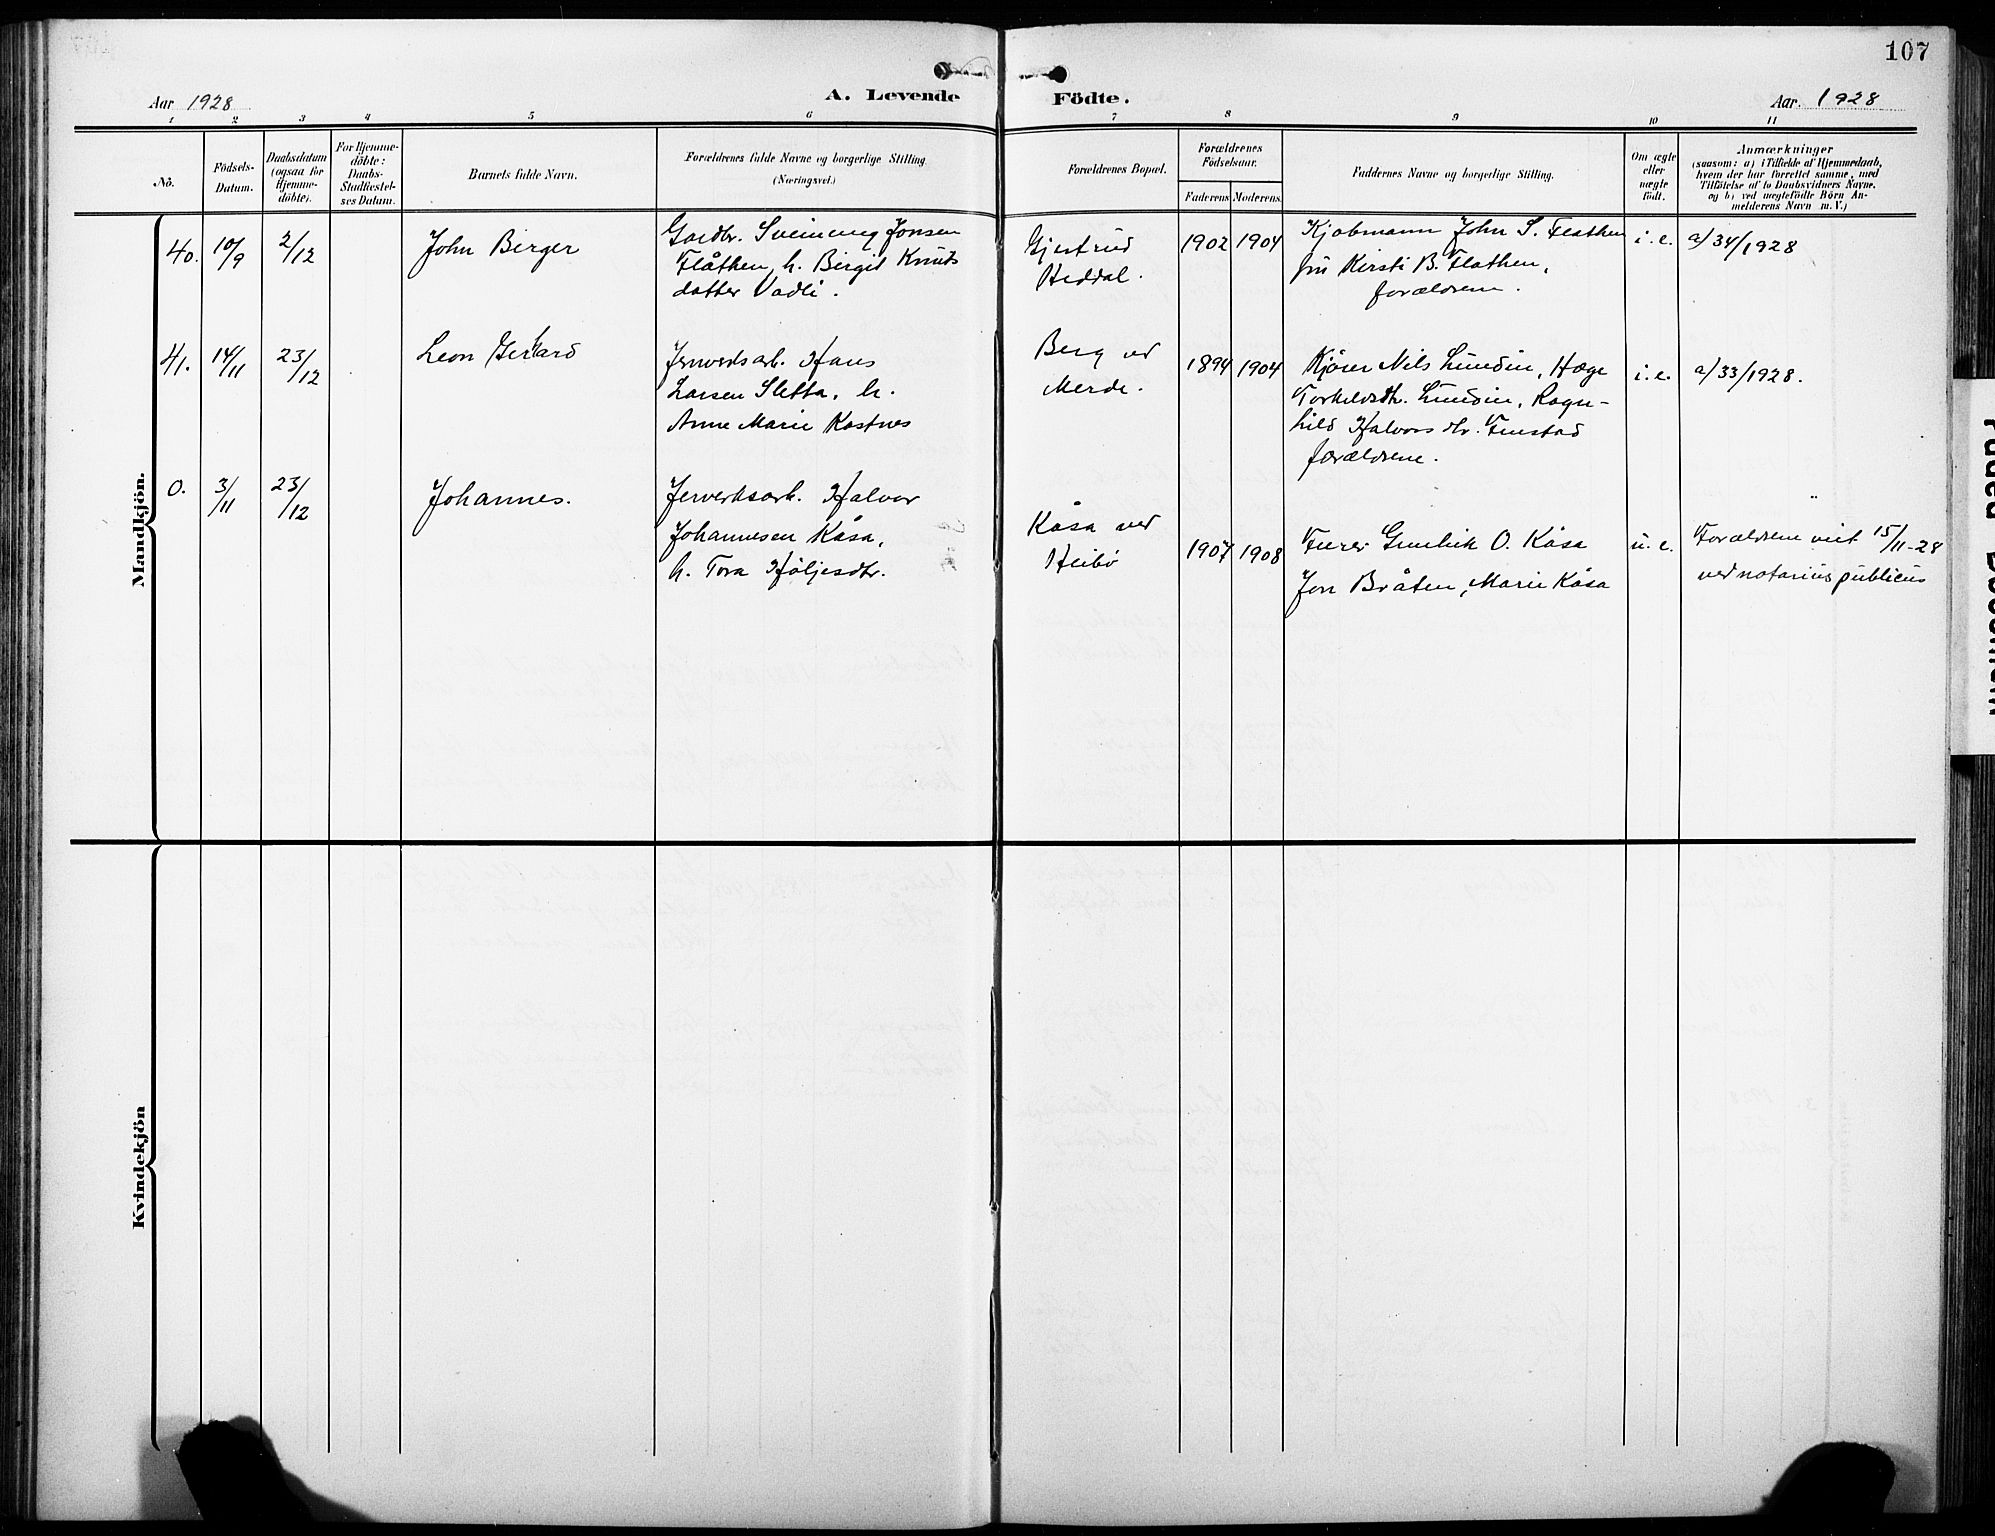 107
Aar 1928
A. Levende
Födte.
Aar. 1928
1 2 3 4 5 6 7 8 9 10 11
No.
Födsels-
Datum.
Daabsdatum
(ogsaa for
Hjemme-
döbte).
For Hjemme-
döbte:
Daabs-
Stadfæstel-
ses Datum.
Barnets fulde Navn.
Forældrenes fulde Navne og borgerlige Stilling
(Næringsvei.)
Forældrenes Bopæl.
Forældrenes
Födselsaar.
Faderens Moderens
Faddernes Navne og borgerlige Stilling.
Om ægte
eller
uægte
födt.
Anmærkninger
(saasom: a) i Tilfælde af Hjemmedaab,
hvem der har forrettet samme, med
Tilföielse af to Daabsvidners Navne.
og b) ved uægtefödte Börn An-
melderens Navn m. V.)
Mandkjön.
40. 10/9 2/12
John Birger
Gardbr. Sveinung Jonsen
Flåthen, h. Birgit Knuts
datter Vadli.
Gjestrud
Heddal.
1902 1904
Kjøbmann John S. Flathen
fru Kirsti B. Flathen,
forældrene.
i. e.
a/34/1928
41. 14/11 23/12
Leon Gerhard
Jernverksarb. Hans
Larsen Sletta, h.
Anne Marie Kastnes
Berg ved
Merde.
1894 1904
Kjörer Nils Lundin, Hæge
Torkildsdtr. Lundin, Ragn-
hild Halvorsdtr. Finstad
forældrene.
i. e.
a/33/1928.
0. 3/11 23/12
Johannes.
Jerverksarb. Halvor
Johannesen Kåsa,
h. Tora Höljesdtr.
Kåsa ved
Heibö
1907 1908
Furer Gunleik O. Kåsa
Jon Bråten, Marie Kåsa
u. e.
Forældrene viet 15/11-28
ved notarius publicus
Kvindekjön